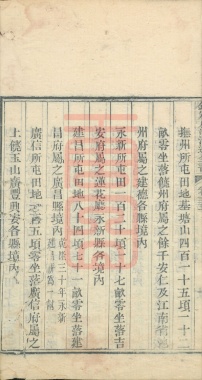 撫州所屯田地基塘山四百一十五項一十二
畝零坐落饒州府屬之餘干安仁及江南
州府屬之建德各縣境內
永新所屯田一百二十項一十七畝零坐落吉
安府屬之蓮花廳永新縣各境內
建昌所屯田地八十四項一十六畝零坐落建
昌府屬之廣昌縣境內
廣信所屯田地二百五項零坐落廣信府屬之
上饒玉山廣豐興安各縣境內